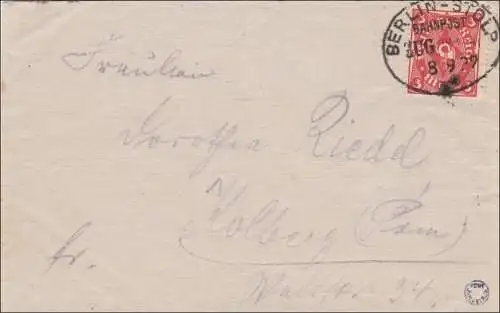 BERLIN-STOLP
BAHNPOST
ZUG
8 9 22
Reich
Fräulein
Dorothea Riedel
Kolberg (Pom)
fr.
34.